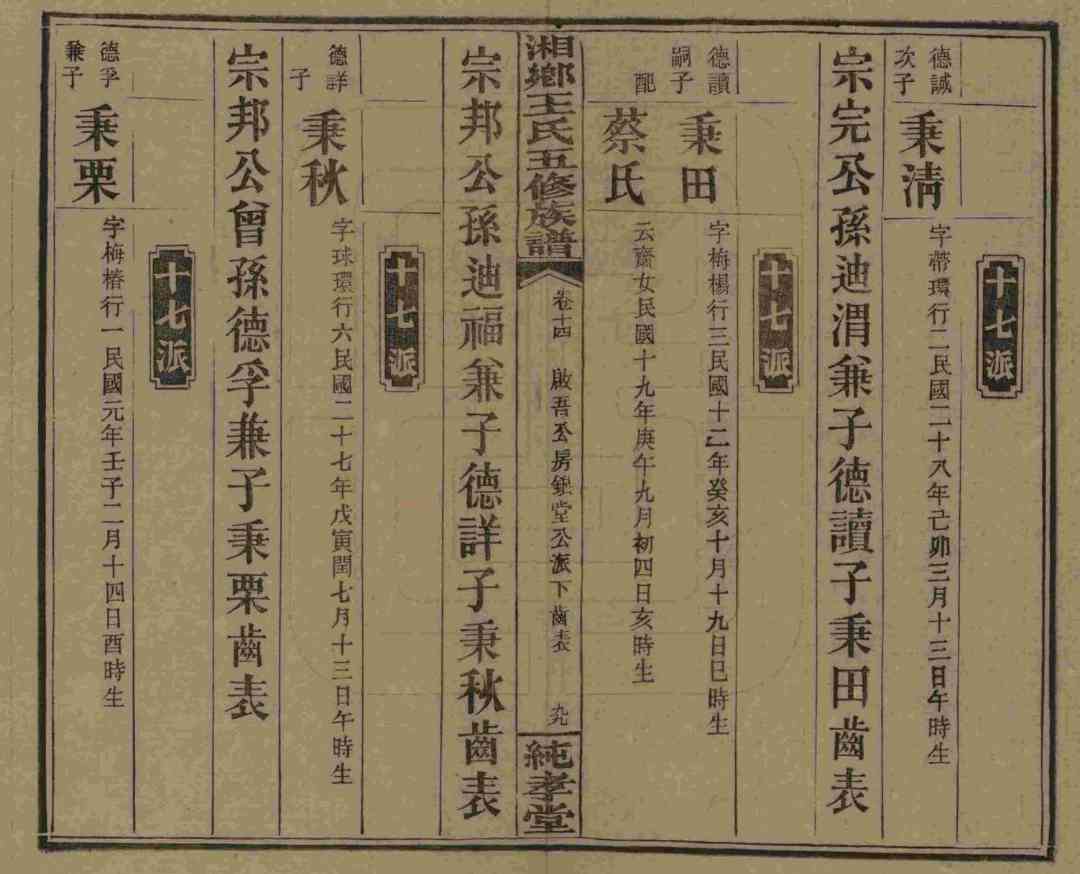 十七派
德誠次子
秉清
字帶環行二民國二十八年己卯三月十三日午時生
宗完公孫迪渭兼子德讀子秉田齒表
十七派
德讀嗣子
秉田
字梅楊行三民國十二年癸亥十月十九日巳時生
配
蔡氏
云齋女民國十九年庚午九月初四日亥時生
湘鄉王氏五修族譜
卷十四
啟吾公房鎮堂公派下齒表
九
純孝堂
宗邦公孫迪福兼子德詳子秉秋齒表
十七派
德詳子
秉秋
字球環行六民國二十七年戊寅閏七月十三日午時生
宗邦公曾孫德孚兼子秉栗齒表
十七派
德孚兼子
秉栗
字梅椿行一民國元年壬子二月十四日酉時生